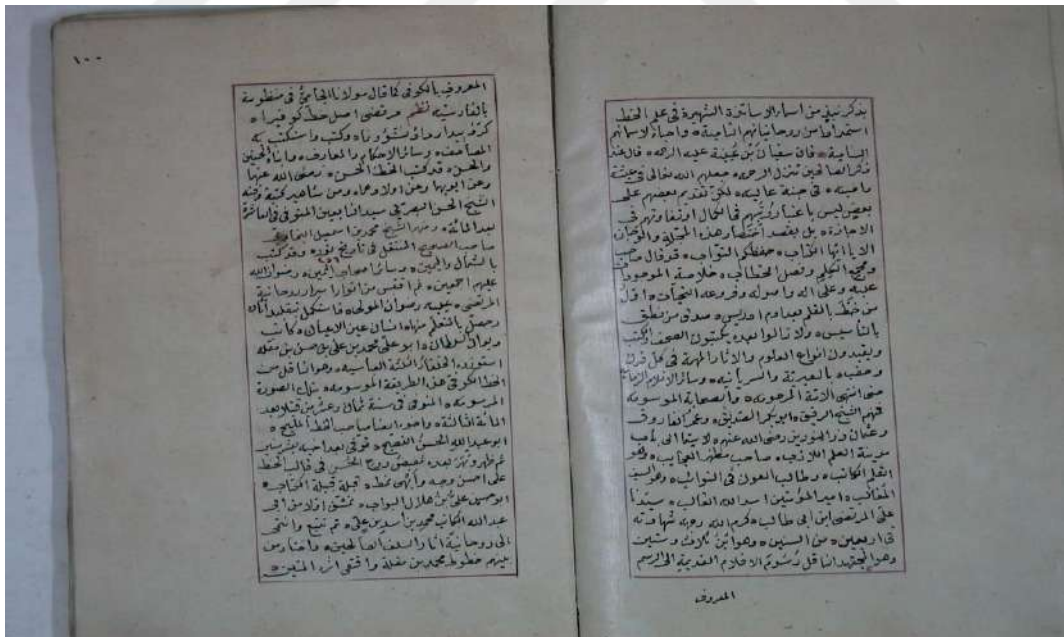 بذكر نبذ من اسماء الاساتذة الشهيرة فى علم الخط
استمدادا من روحانياتهم الثامنة واحياء لاسمائهم
السامية فان سفيان بن عيينة عليه الرحمه قال عند
ذكر الصالحين تنزل الرحمه جعلهم الله تعالى فى عيشة
راضيه فى جنة عاليه لكن تقديم بعضهم على
بعض ليس باعتبار رتبهم فى الكمال او تفاوتهم فى
الاجازه بل بقصد اختصار هذه المجلة
الا يا ايها الكتاب حفظكم التواب قد قال صاحب
ومجمع الكلم وفصل الخطاب خلاصة الموجودات
عليه وعلى اله واصوله وفروعه التحيات اول
من خط بالقلم بعد ادم ادريس صدق من نطق
بالتأسيس ولا زالوا بعده يكتبون الصحف والكتب
ويقيدون انواع العلوم والاثار المهمة فى كل قرن
وحقب بالعبرية والسريانيه وسائر الاقلام
حتى انتهى الامة المرحومه والصحابة الموسومه
فمنهم الشيخ الرفيق ابو بكر الصديق وعمر الفاروق
وعثمان ذو النورين رضى الله عنهم لا سيما الى باب
مدينة العلم اللازب صاحب مظهر العجايب وهو
القلم الكاتب وطالب العون فى النوائب وهو السيد
الغالب امير المؤمنين اسد الله الغالب سيدنا
على المرتضى ابن ابى طالب كرم الله وجهه شهادته
فى اربعين من السنين وهو ابن ثلاث وستين
وهو المجتهد انا قل رسوم الاقلام القديمة الى الرسم
المعروف
١٠٠
المعروف بالكوفى كما قال مولانا الجامى فى منظومته
بالفارسيه نظم مرتضى اصل خط كوفيرا
كرد پيدا وكتب واستكتب به
المصاحف وسائر الاحكام والمعارف وابناه الحسين
والحسن قد كتبا الخط الحسن رضى الله عنهما
وعن ابويهما وعن اولادهما ومن مشاهير كتبة
الشيخ الحسن البصرى سيد التابعين المتوفى فى العاشرة
بعد المائة ومنهم الشيخ محمد بن اسمعيل البخارى
صاحب الصحيح المنتقل فى تاريخ نور وقد كتب
بالشمال واليمين وسائر اصحاب اليمين رضوان الله
عليهم اجمعين ثم اقتبس من انوار اسرار روحانية
المرتضى عليه رضوان المولى فاستكمل بتقليد اثاره
وحصل بالتعلم منها انسان عين الاعيان كاتب
ديوان السلطان ابو على محمد بن على بن حسن بن مقله
استوزره الخلفاء الثلثة العباسيه وهو الناقل من
الخط الكوفى هذه الطريقة الموسومه بتلك الصورة
المرسومه المتوفى فى سنة ثمان وعشرين قبلا بعد
المائة الثالثة واخوه ايضا صاحب الخط المليح
ابو عبد الله الحسن الفصيح توفى بعد اخيه بعشر سنين
ثم ظهر وبهر بعده روح الحسن فى قالب الخط
على احسن وجه وابهى نمط قبلة قبيلة الكتاب
ابو حسن على بن هلال البواب تمشق اولا من ابى
عبد الله الكاتب محمد بن اسد بن على ثم تتبع وانتهى
الى روحانية اثار السلف الصالحين واختار من
بينهم خطوط محمد بن مقلة واقتفى اثره المتين